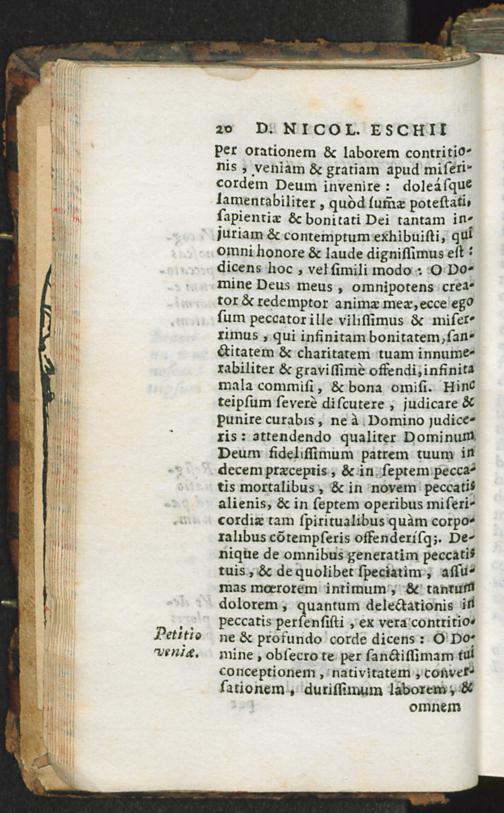 20 D. NICOL. ESCHII
per orationem & laborem contritio-
nis, veniam & gratiam apud miseri-
cordem Deum invenire: doleásque
lamentabiliter, quòd sum̃æ potestati,
sapientiæ & bonitati Dei tantam in-
juriam & contemptum exhibuisti, qui
omni honore & laude dignissimus est:
dicens hoc, vel simili modo: O Do-
mine Deus meus, omnipotens crea-
tor & redemptor animæ meæ, ecce ego
sum peccator ille vilissimus & miser-
rimus, qui infinitam bonitatem, san-
ctitatem & charitatem tuam innume-
rabiliter & gravissimè offendi; infinita
mala commisi, & bona omisi. Hinc
teipsum severè discutere, judicare &
punire curabis, ne à Domino judice-
ris: attendendo qualiter Dominum
Deum fidelissimum patrem tuum in
decem præceptis, & in septem pecca-
tis mortalibus, & in novem peccatis
alienis, & in septem operibus miseri-
cordiæ tam spiritualibus quàm corpo-
ralibus cōtempseris offenderisq;. De-
nique de omnibus generatim peccatis
tuis, & de quolibet speciatim, assu-
mas mœrorem intimum, & tantum
dolorem, quantum delectationis in
peccatis persensisti, ex vera contritio-
Petitio veniæ.
ne & profundo corde dicens: O Do-
mine, obsecro te per sanctissimam tui
conceptionem, nativitatem, conver-
sationem, durissimum laborem, &
omnem